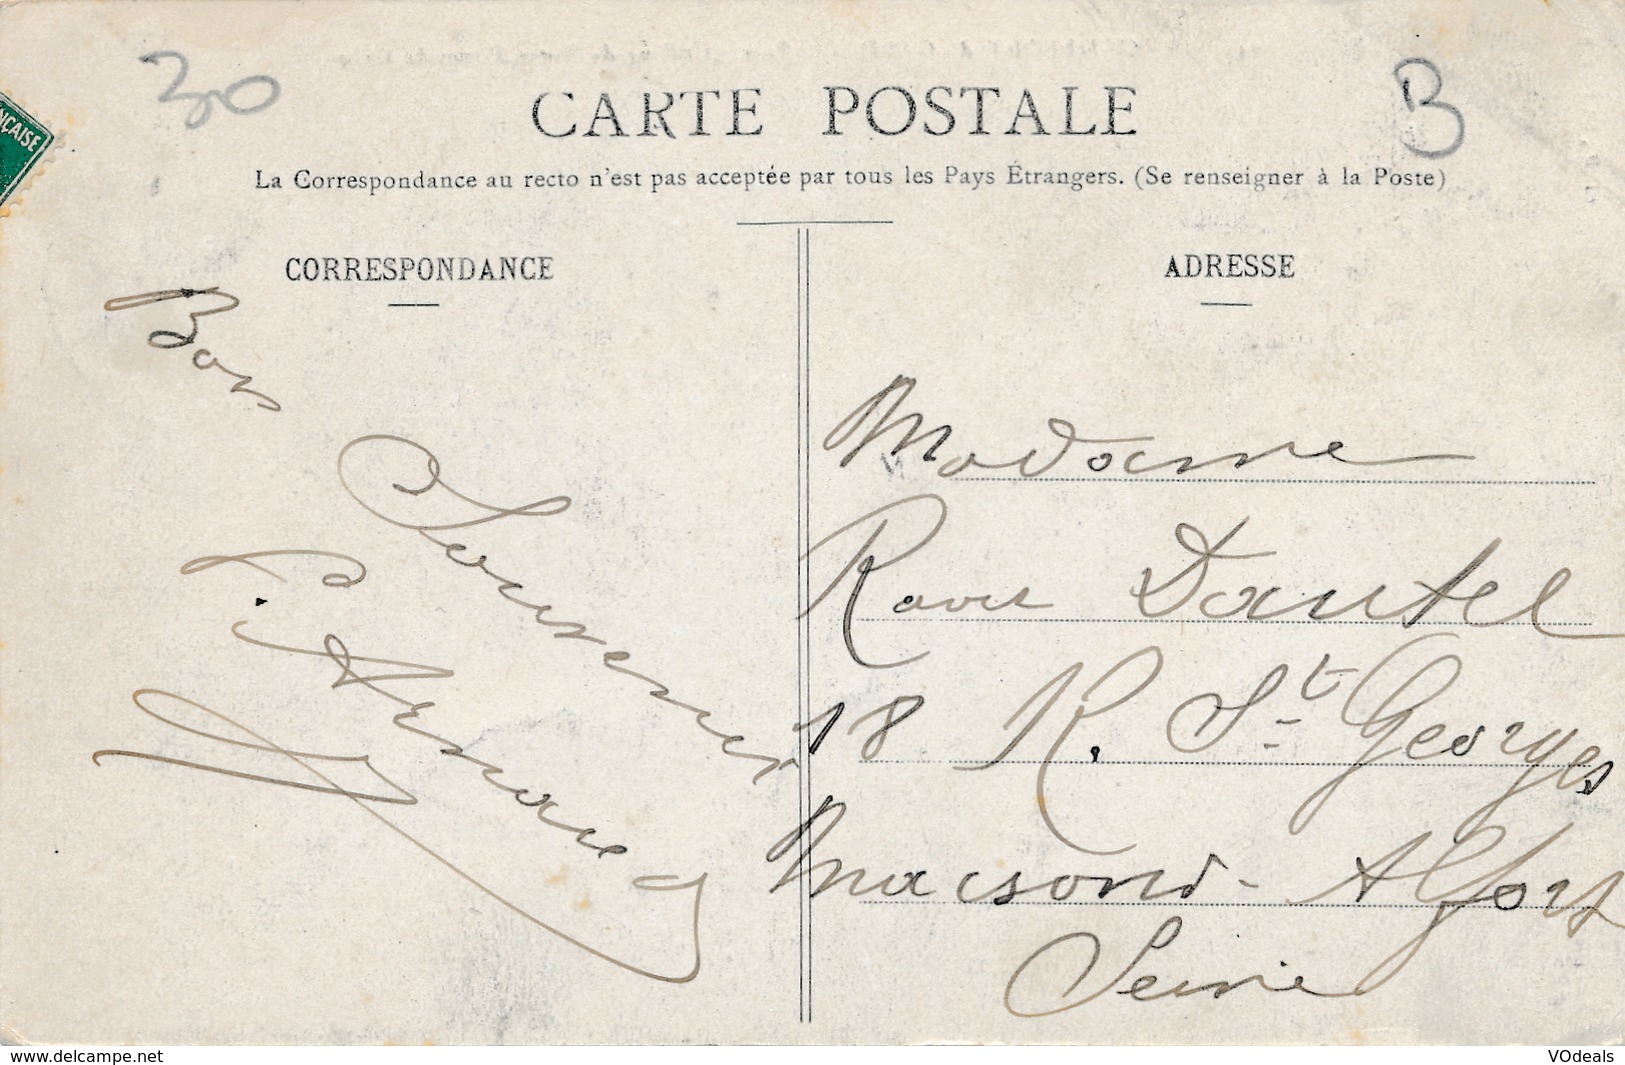 30
B
NÇAISE
CARTE POSTALE
La Correspondance au recto n'est pas acceptée par tous les Pays Étrangers. (Se renseigner à la Poste)
CORRESPONDANCE
Bon
Souvenir
ADRESSE
Madame
Raoul Dautel
18 R. St Georges
Maisons-Alfort
Seine
www.delcampe.net
VOdeals